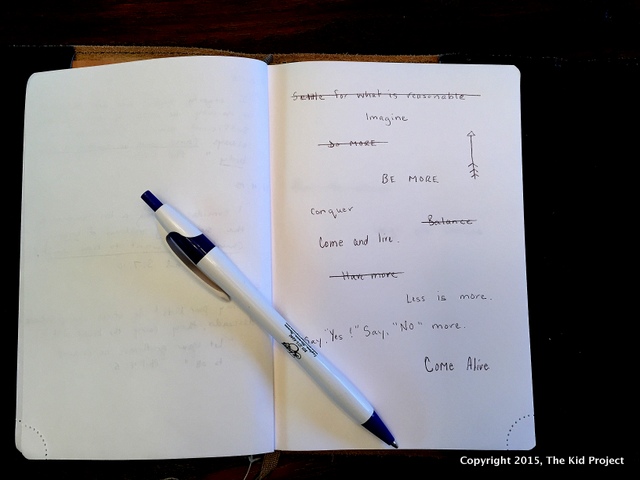 Settle for what is reasonable
Imagine
Do MORE
BE MORE
Conquer
Balance
Come and live.
Have more
Less is more.
Say, "Yes!" Say, "No" more.
Come Alive
Copyright 2015, The Kid Project